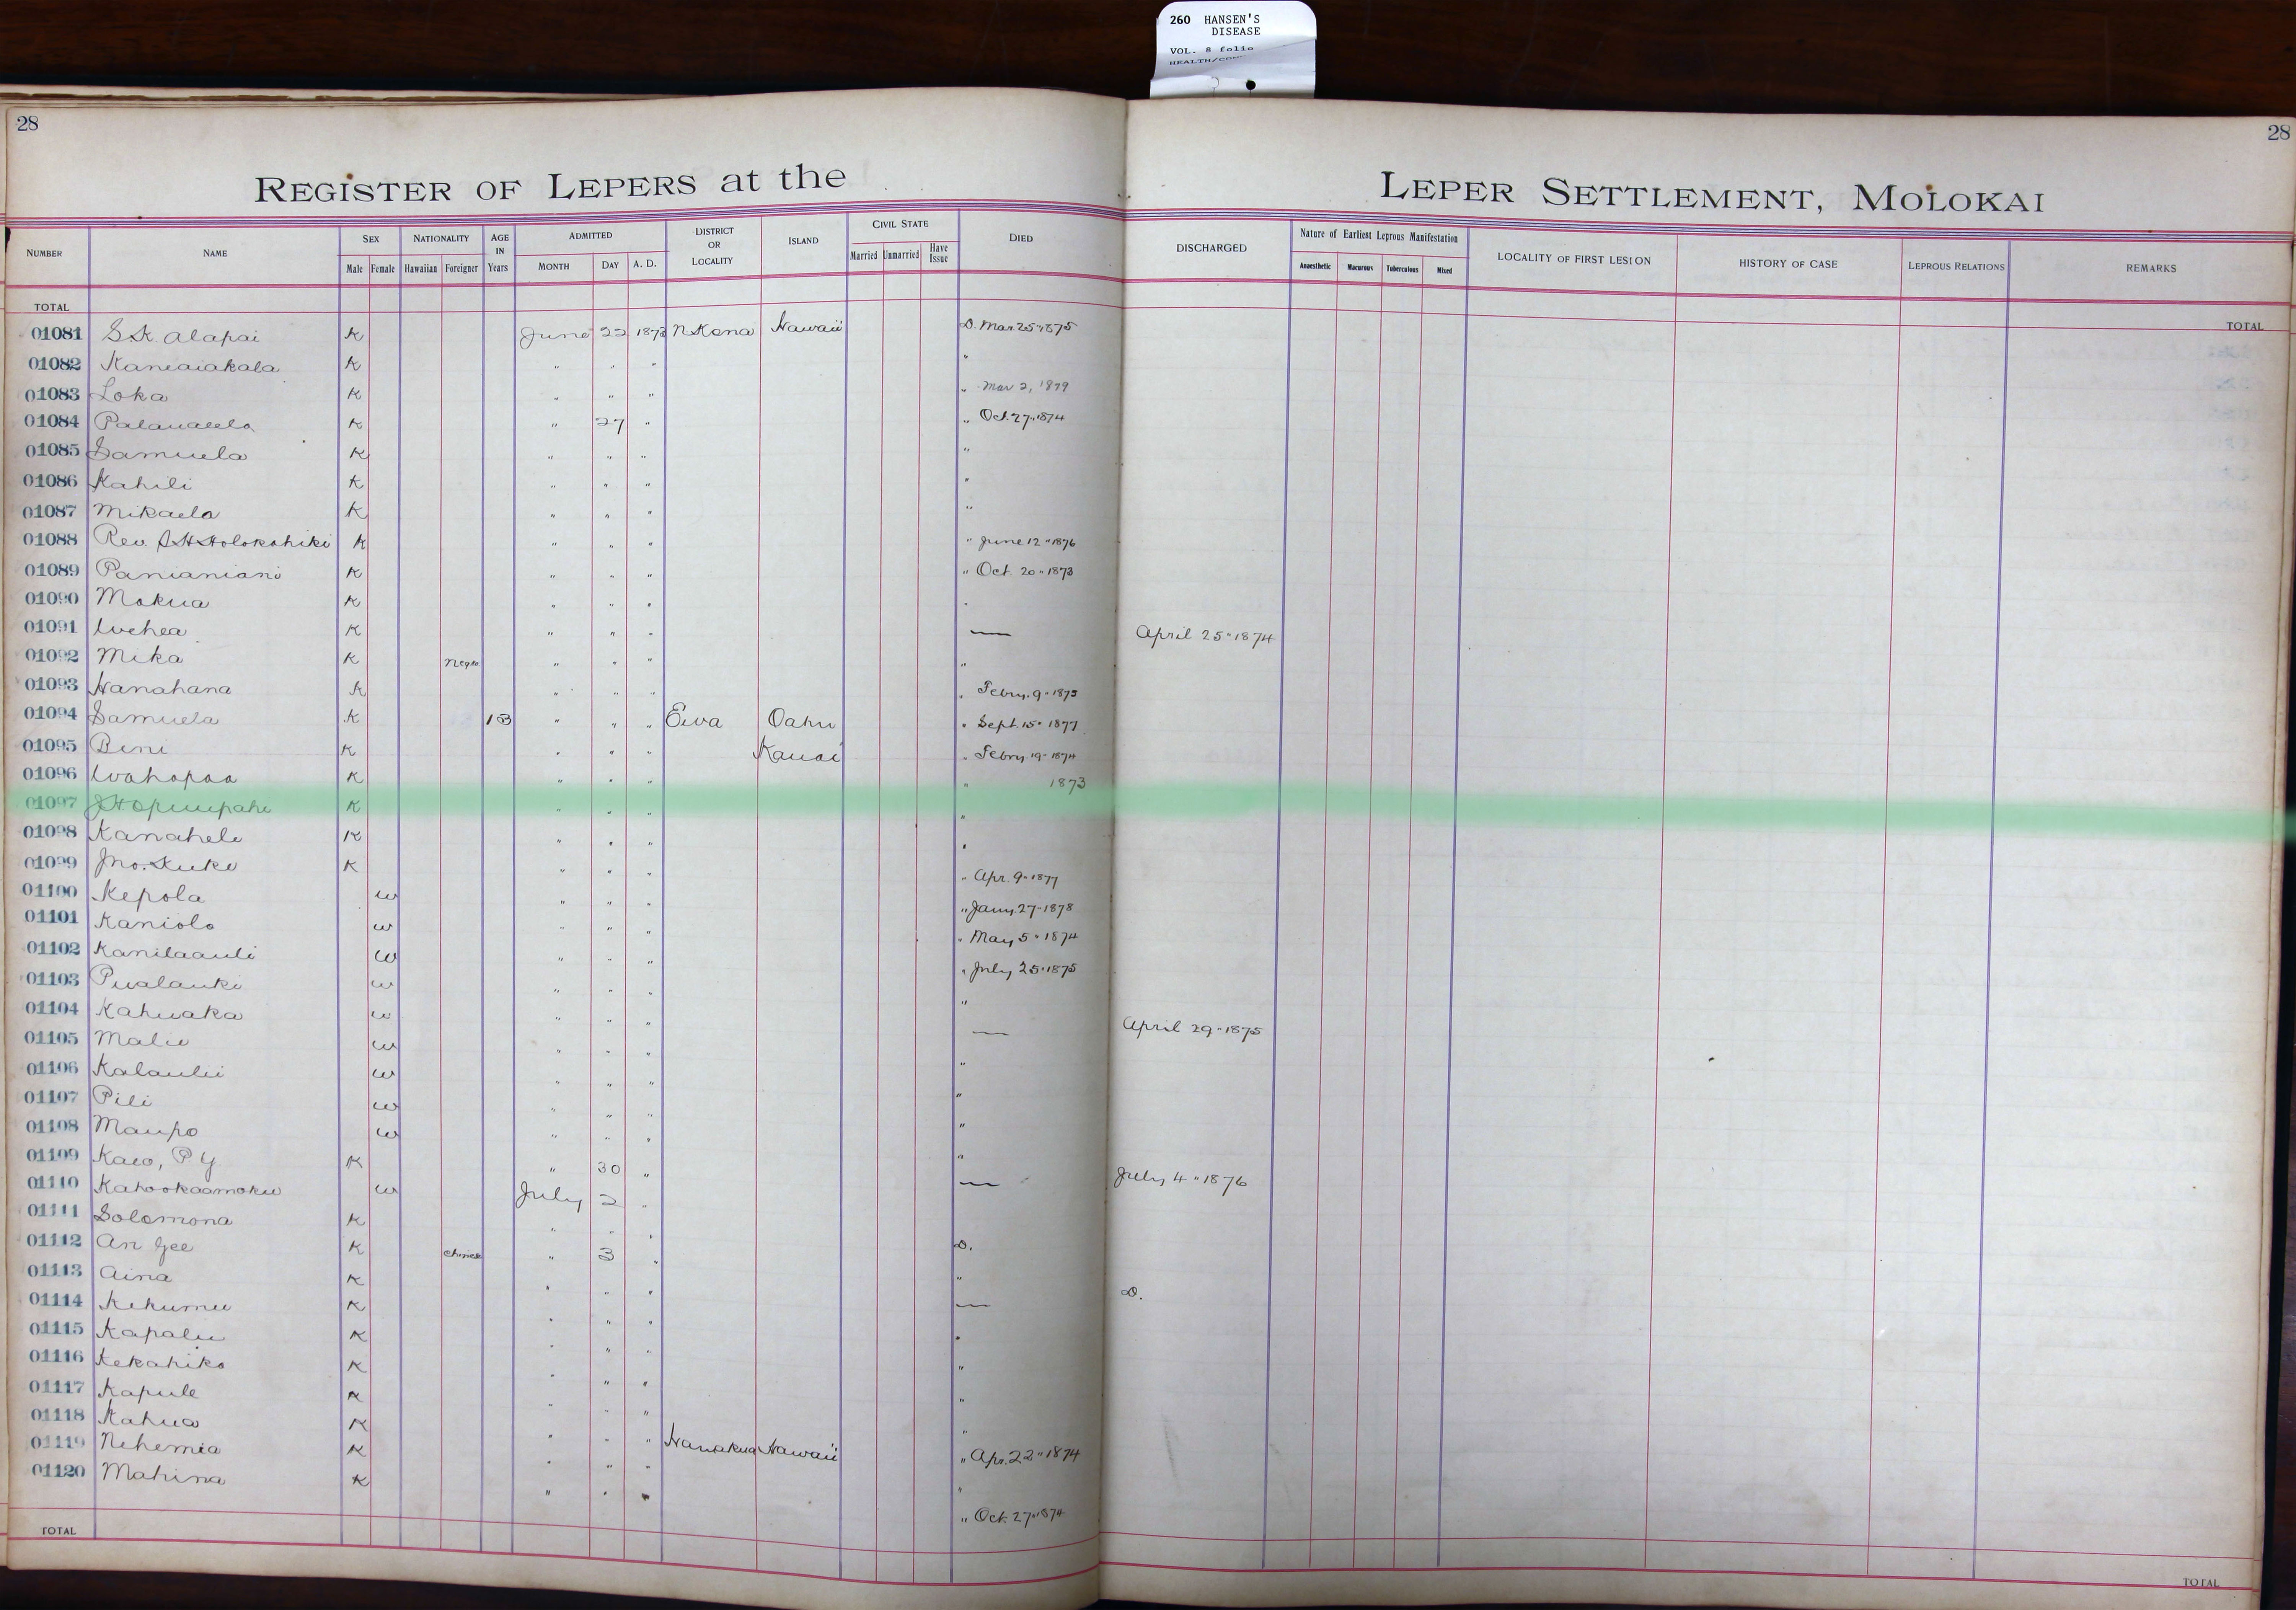 260 HANSEN'S
DISEASE
VOL. 8 folio
28
28
REGISTER OF LEPERS at the LEPER SETTLEMENT, MOLOKAI
NUMBER NAME SEX NATIONALITY AGE IN Years ADMITTED DISTRICT OR LOCALITY ISLAND CIVIL STATE DIED DISCHARGED Nature of Earliest Leprous Manifestation LOCALITY OF FIRST LESION HISTORY OF CASE LEPROUS RELATIONS REMARKS
Male Female Hawaiian Foreigner MONTH DAY A. D. Married Unmarried Have Issue Anaesthetic Macurous Tuberculous Mixed
TOTAL TOTAL
01081 S.K. Alapai K June 22 1873 N Kona Hawaii D. Mar. 25 " 1875
01082 Kaneaiakala K " " " "
01083 Loka K " " " " Mar 2, 1879
01084 K " 27 " " Oct. 27 " 1874
01085 Samuela K " " " "
01086 Kahili K " " " "
01087 Mikaela K " " " "
01088 Rev. S H Holokahiki K " " " " June 12 " 1876
01089 Panianiani K " " " " Oct. 20 " 1873
01090 Mokua K " " " "
01091 Wehea K " " " — April 25 " 1874
01092 Mika K Negro " " " "
01093 Hanahana K " " " " Febry. 9 "
01094 Samuela K 13 " " " Ewa Oahu " Sept. 15 " 1877
01095 Beni K " " " Kauai " Febry 19 " 1874
01096 Wahapaa K " " " " 1873
01097 K " " " "
01098 Kanahele K " " " "
01099 Jno. Kuke K " " " " Apr. 9 " 1877
01100 Kepola w " " " " Jany. 27 " 1878
01101 Kaniolo w " " " " May 5 " 1874
01102 Kanilaauli w " " " " July 25 " 1875
01103 Pualauki w " " " "
01104 Kahuaka w " " " — April 29 " 1875
01105 Malie w " " " "
01106 Kalaulii w " " " "
01107 Pili w " " " "
01108 Maupo w " " " "
01109 Kaeo, P Y K " 30 " — July 4 " 1876
01110 Kahookaamoku w July 2 "
01111 Solomona K " " " D.
01112 An Gee K Chinese " 3 " "
01113 Aina K " " " — D.
01114 Kekumu K " " " "
01115 Kapalu K " " " "
01116 Kekahiko K " " " "
01117 Kapule K " " " "
01118 Kahua K " " " " Apr. 22 " 1874
01119 Nehemia K " " " Hamakua Hawaii "
01120 Mahina K " " " " Oct. 27 " 1874
TOTAL TOTAL